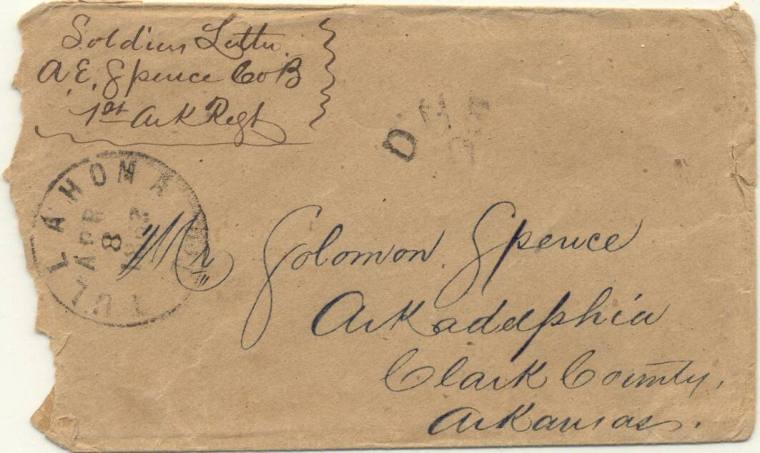 Soldiers Letter.
A. E. Spence Co B
1st Ark Regt
TULLAHOMA
APR
8
DUE
Mr Solomon Spence
Arkadelphia
Clark County,
Arkansas.